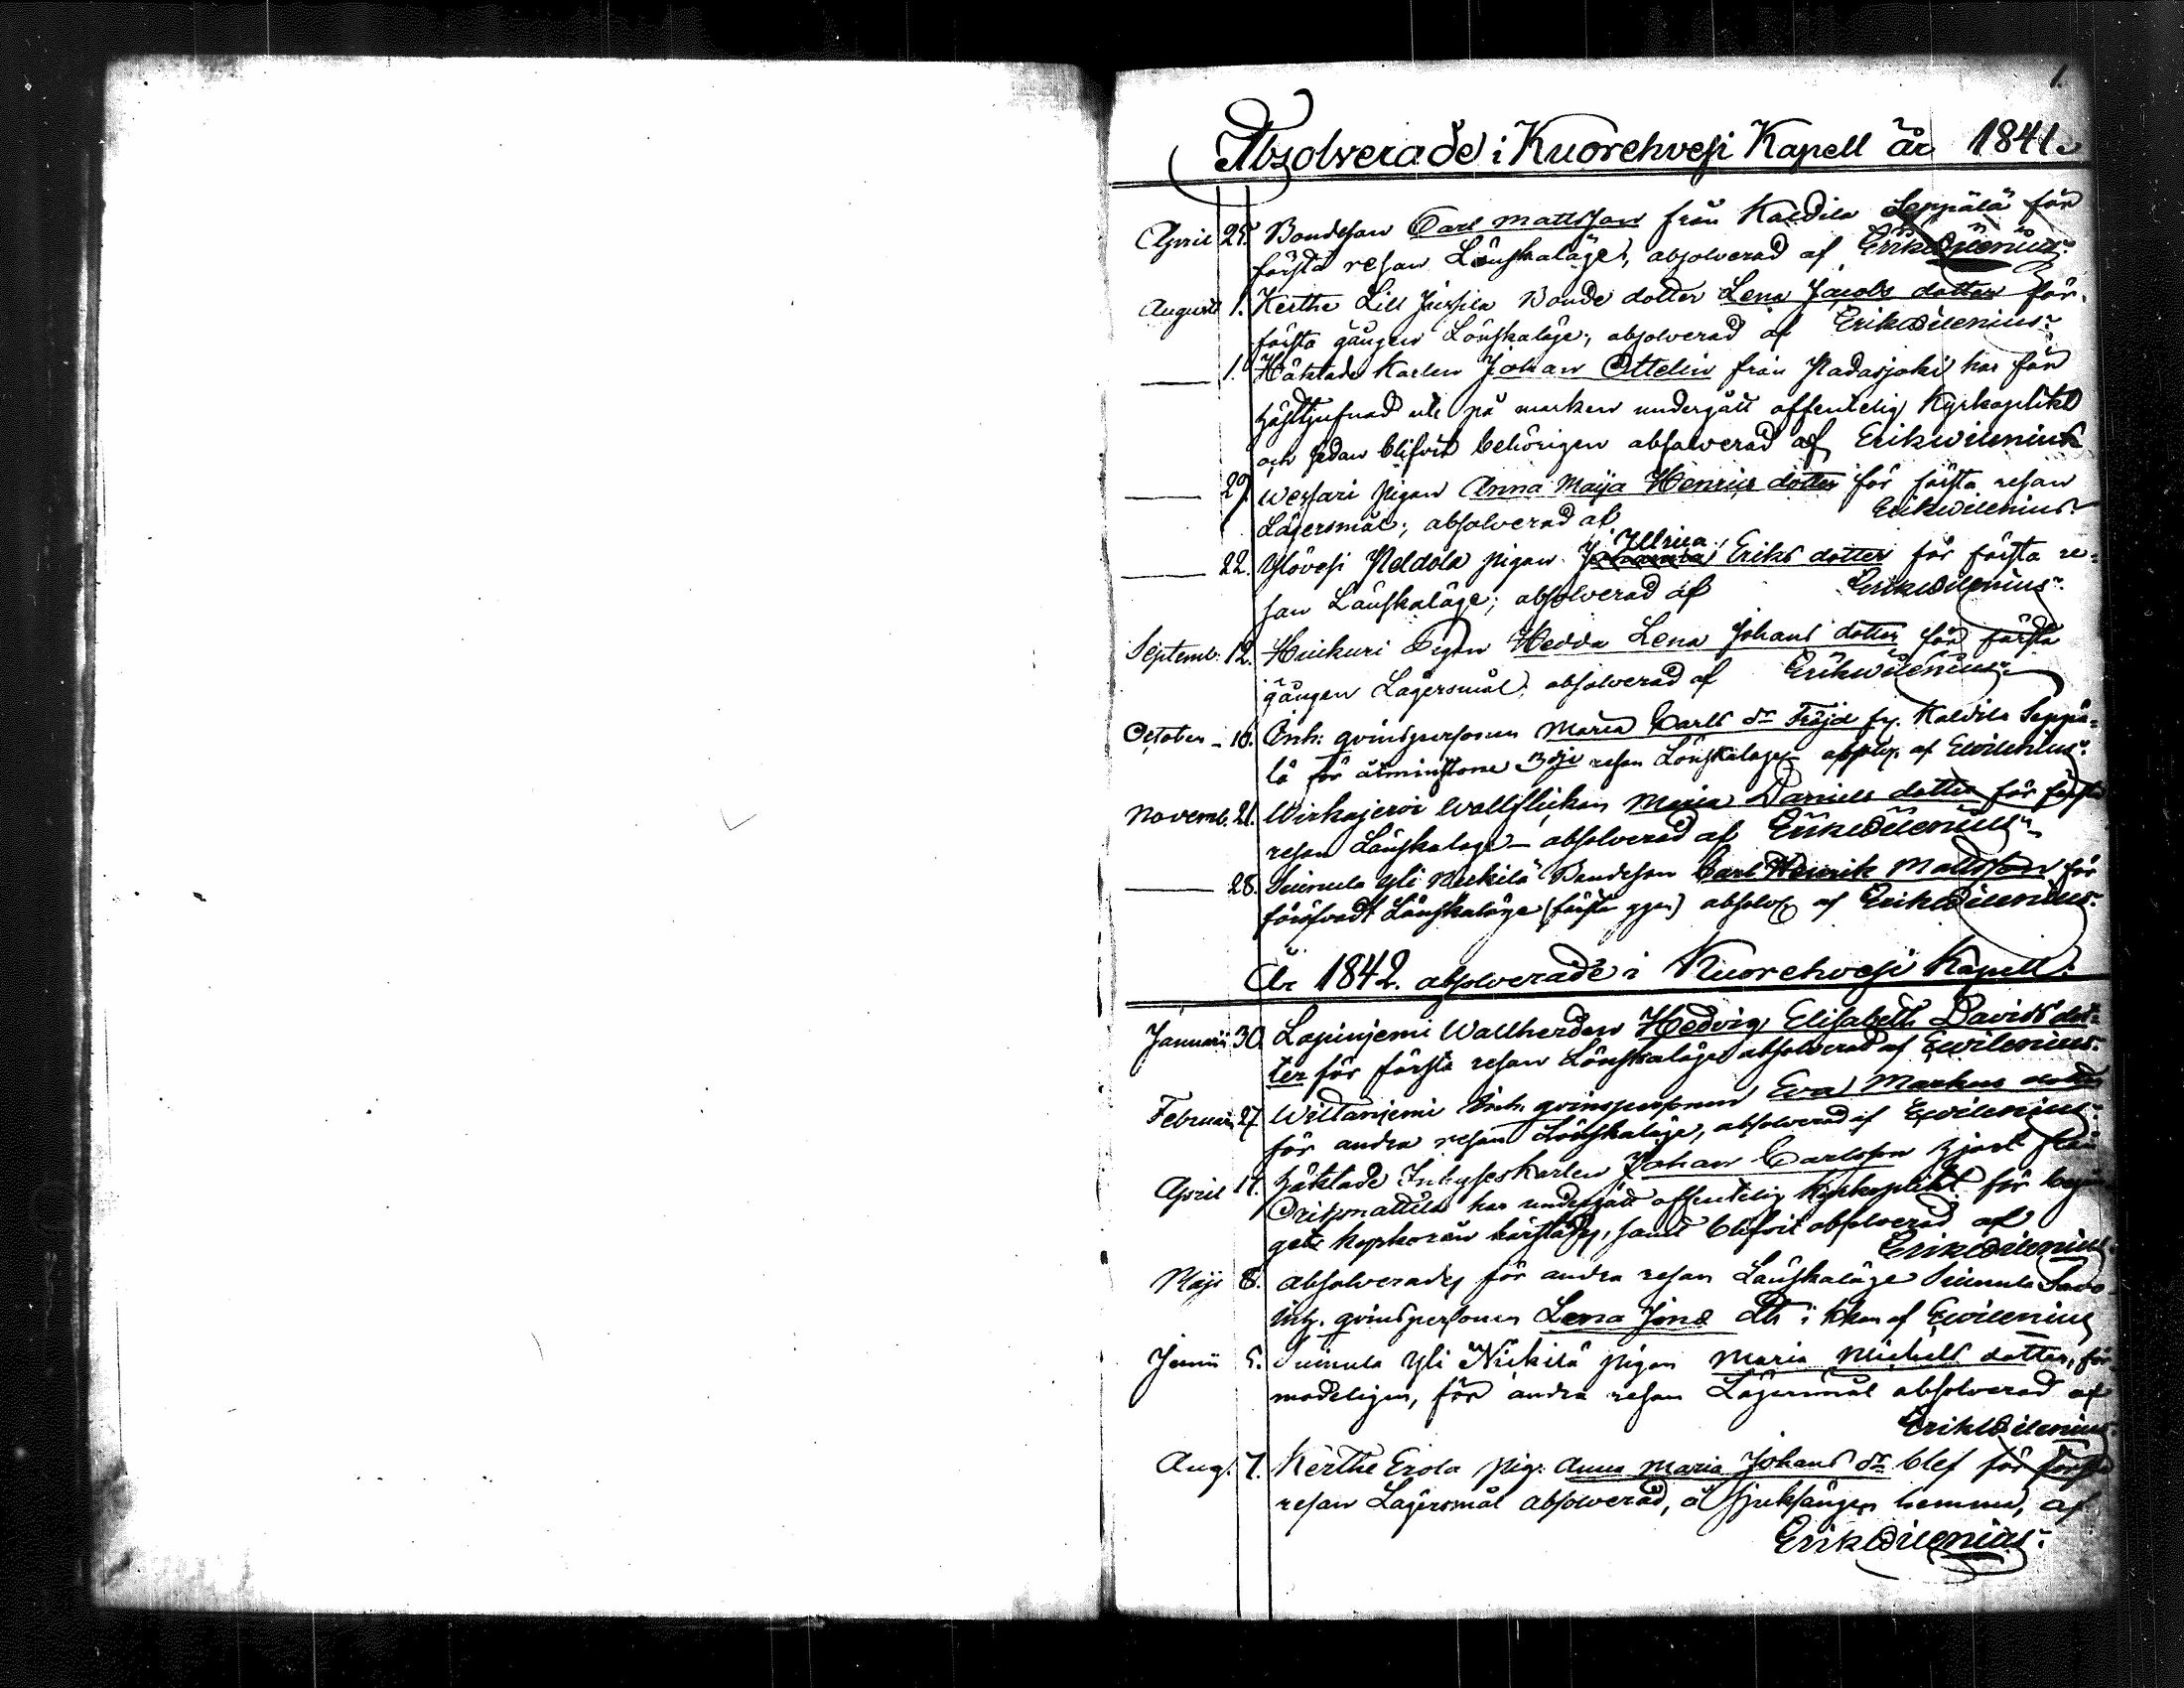 1.
Absolverade i Kuorehvesi Kapell år 1841.
April 25. Bondeson Carl Mattsson från Kaldila Seppälä för
första resan Lönskaläge, absolverad af Erik Wilenius.
Augusti 1. Kerthe Lill Jussila Bonde dotter Lena Jacobs dotter för
första gången Lönskaläge, absolverad af Erik Wilenius.
____ 1. Häktade Karlen Johan Ottelin från Padasjoki har för
hästtjufnad ute på marken undergått offentelig Kyrkoplikt
och sedan blifvit behörigen absolverad af Erik Wilenius
____ 29. Wessari pigan Anna Maija Henrics dotter för första resan
Lägersmål; absolverad af Erik Wilenius.
____ 22. Ylövesi Peldola pigan Ullrica Eriks dotter för första re-
san Lönskaläge; absolverad af Erik Wilenius.
Septemb: 12. Huikuri Pigan Hedda Lena Johans dotter för första
gången Lägersmål; absolverad af Erik Wilenius.
October - 16. Inh: qvinspersonen Maria Carls dr Fröjd fr. Kaldila Seppä-
lä för åtminstone 3dje resan Lönskaläge af EWilenius.
Novemb. 21. Wirkajervi Wallflickan Maria Daniels dotter för första
resan Lönskaläge - absolverad af Erik Wilenius
____ 28. Suinula Yli Nickilä Bondeson Carl Henrik Mattsson för
försvadt Lönskaläge (första ggn) absolv. af Erik Wilenius.
År 1842. absolverade i Kuorehvesi Kapell.
Januarii 30. Lapinjemi Wallherden Hedvig Elisabeth Davids dot-
ter för första resan Lönskaläge absolverad af EWilenius.
Februarii 27. Wiltanjemi Inh. qvinspersonen Eva Markus dotter
för andra resan Lönskaläge, absolverad af EWilenius.
April 17. Häktade Inhyses Karlen Johan Carlsson Hjort från
Orihmattila har undergått offentelig Kyrkoplikt för begån-
get Kyrkorån härstädes, samt blifvit absolverad af
Erik Wilenius
Maji 8. Absolverades för andra resan Lönskaläge Suinula Savo
inh. qvinspersonen Lena Jons dtr i Kkan af EWilenius
Junii 5. Suinula Yli Nickilä pigan Maria Michels dotter, för-
modeligen, för andra resan Lägersmål absolverad af
Erik Wilenius.
Aug. 7. Kerthe Erola pig. Anna Maria Johans dr blef för första
resan Lägersmål absolverad, å sjuksängen hemma, af
Erik Wilenius.